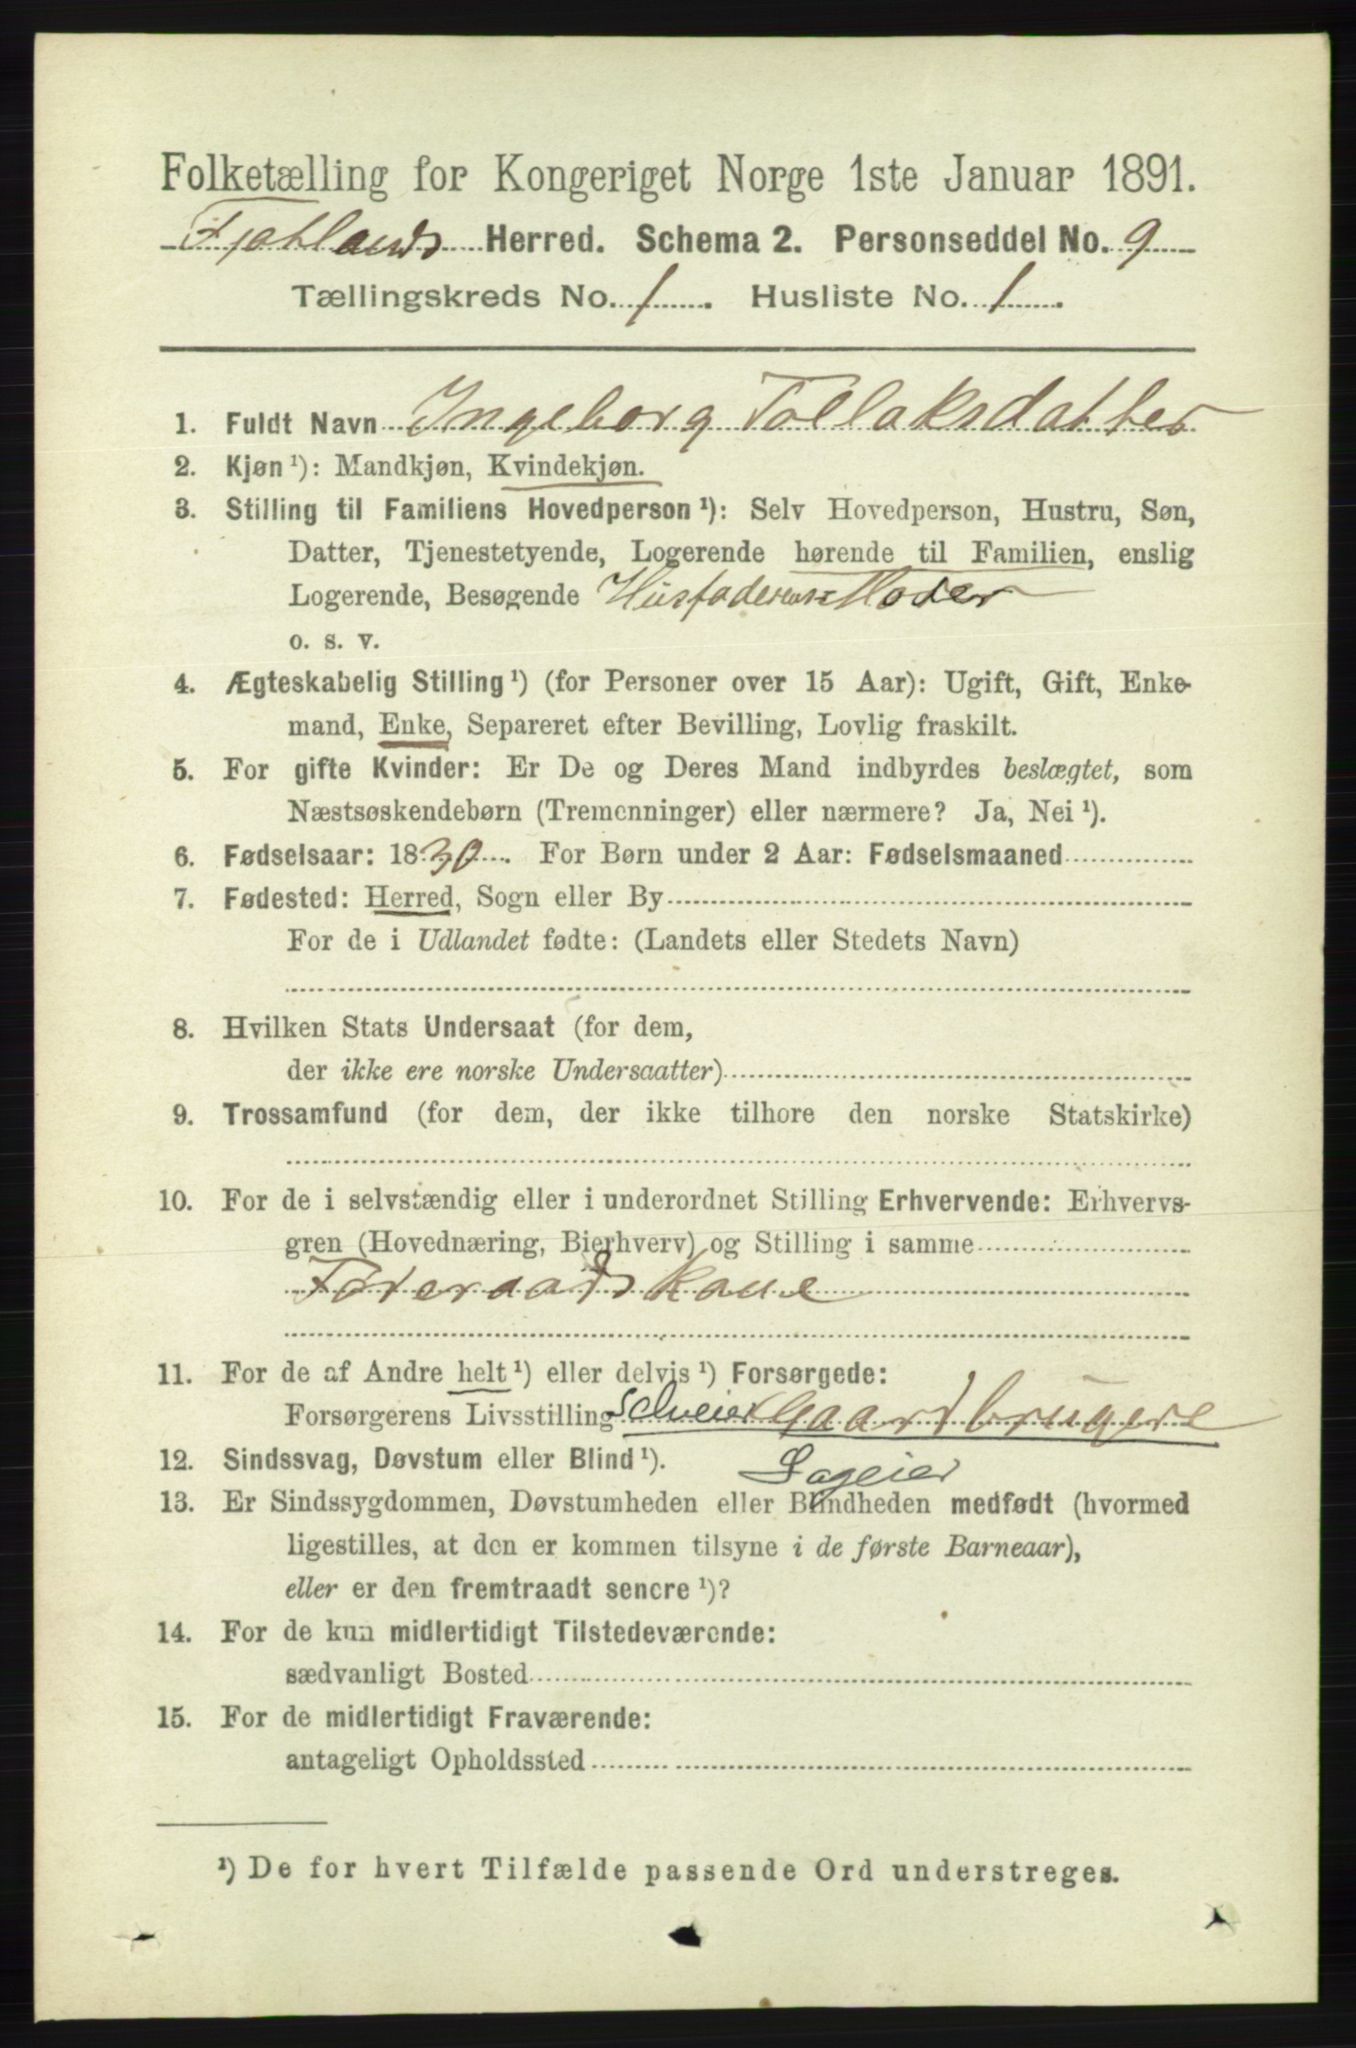 Folketælling for Kongeriget Norge 1ste Januar 1891.
Fjotlands Herred. Schema 2. Personseddel No. 9
Tællingskreds No. 1. Husliste No. 1.
1. Fuldt Navn Ingeborg Tollaksdatter
2. Kjøn ¹): Mandkjøn, Kvindekjøn.
3. Stilling til Familiens Hovedperson ¹): Selv Hovedperson, Hustru, Søn,
Datter, Tjenestetyende, Logerende hørende til Familien, enslig
Logerende, Besøgende Husfaderens Moder
o. s. v.
4. Ægteskabelig Stilling ¹) (for Personer over 15 Aar): Ugift, Gift, Enke-
mand, Enke, Separeret efter Bevilling, Lovlig fraskilt.
5. For gifte Kvinder: Er De og Deres Mand indbyrdes beslægtet, som
Næstsøskendebørn (Tremenninger) eller nærmere? Ja, Nei ¹).
6. Fødselsaar: 1830. For Børn under 2 Aar: Fødselsmaaned
7. Fødested: Herred, Sogn eller By
For de i Udlandet fødte: (Landets eller Stedets Navn)
8. Hvilken Stats Undersaat (for dem,
der ikke ere norske Undersaatter)
9. Trossamfund (for dem, der ikke tilhore den norske Statskirke)
10. For de i selvstændig eller i underordnet Stilling Erhvervende: Erhvervs-
gren (Hovednæring, Bierhverv) og Stilling i samme
Føderaadskone
11. For de af Andre helt ¹) eller delvis ¹) Forsørgede:
Forsørgerens Livsstilling Selveier Gaardbrugere
12. Sindssvag, Døvstum eller Blind ¹).
13. Er Sindssygdommen, Døvstumheden eller Blindheden medfødt (hvormed
ligestilles, at den er kommen tilsyne i de første Barneaar),
eller er den fremtraadt senere ¹)?
14. For de kun midlertidigt Tilstedeværende:
sædvanligt Bosted
15. For de midlertidigt Fraværende:
antageligt Opholdssted
¹) De for hvert Tilfælde passende Ord understreges.